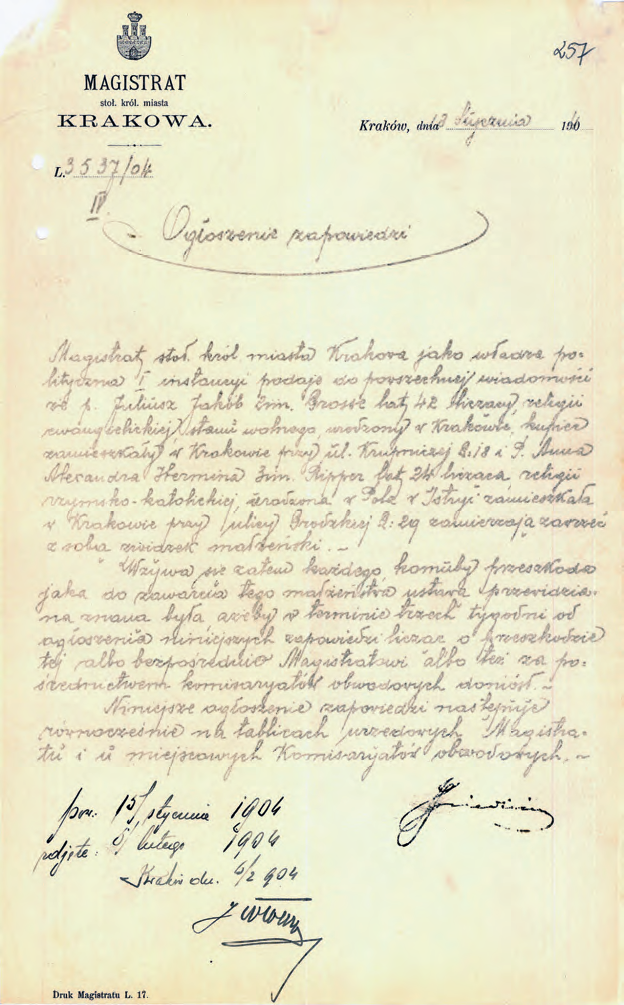 257
MAGISTRAT
stoł. król. miasta
KRAKOWA.
Kraków, dnia 13 Stycznia 1904
L. 3537/04
IV
Ogłoszenie zapowiedzi
Magistrat stoł. król. miasta Krakowa jako władza po-
lityczna I instancyi podaje do powszechnej wiadomości
że p. Juliusz Jakób 2im. Grosse lat 42 liczący, religii
ewangielickiej, stanu wolnego, urodzony w Krakowie, kupiec
zamieszkały w Krakowie przy ul. Krupniczej L: 18 i P. Anna
Alexandra Hermina 3im. Ripper lat 24 licząca, religii
rzymsko-katolickiej, urodzona w Pola w Istryi zamieszkała
w Krakowie przy ulicy Grodzkiej L: 29 zamierzają zawrzeć
z sobą związek małżeński. –
Wzywa się zatem każdego, komuby przeszkoda
jaka do zawarcia tego małżeństwa ustawą przewidzia-
na znaną była, ażeby w terminie trzech tygodni od
ogłoszenia niniejszych zapowiedzi licząc o przeszkodzie
tej albo bezpośrednio Magistratowi albo też za po-
średnictwem komisaryatów obwodowych doniósł. –
Niniejsze ogłoszenie zapowiedzi następuje
równocześnie na tablicach urzędowych Magistra-
tu i u miejscowych Komisaryatów obwodowych. –
15/ stycznia 1904
zdjęte: 5/ lutego 1904
Kraków dn. 6/2 904
Druk Magistratu L. 17.